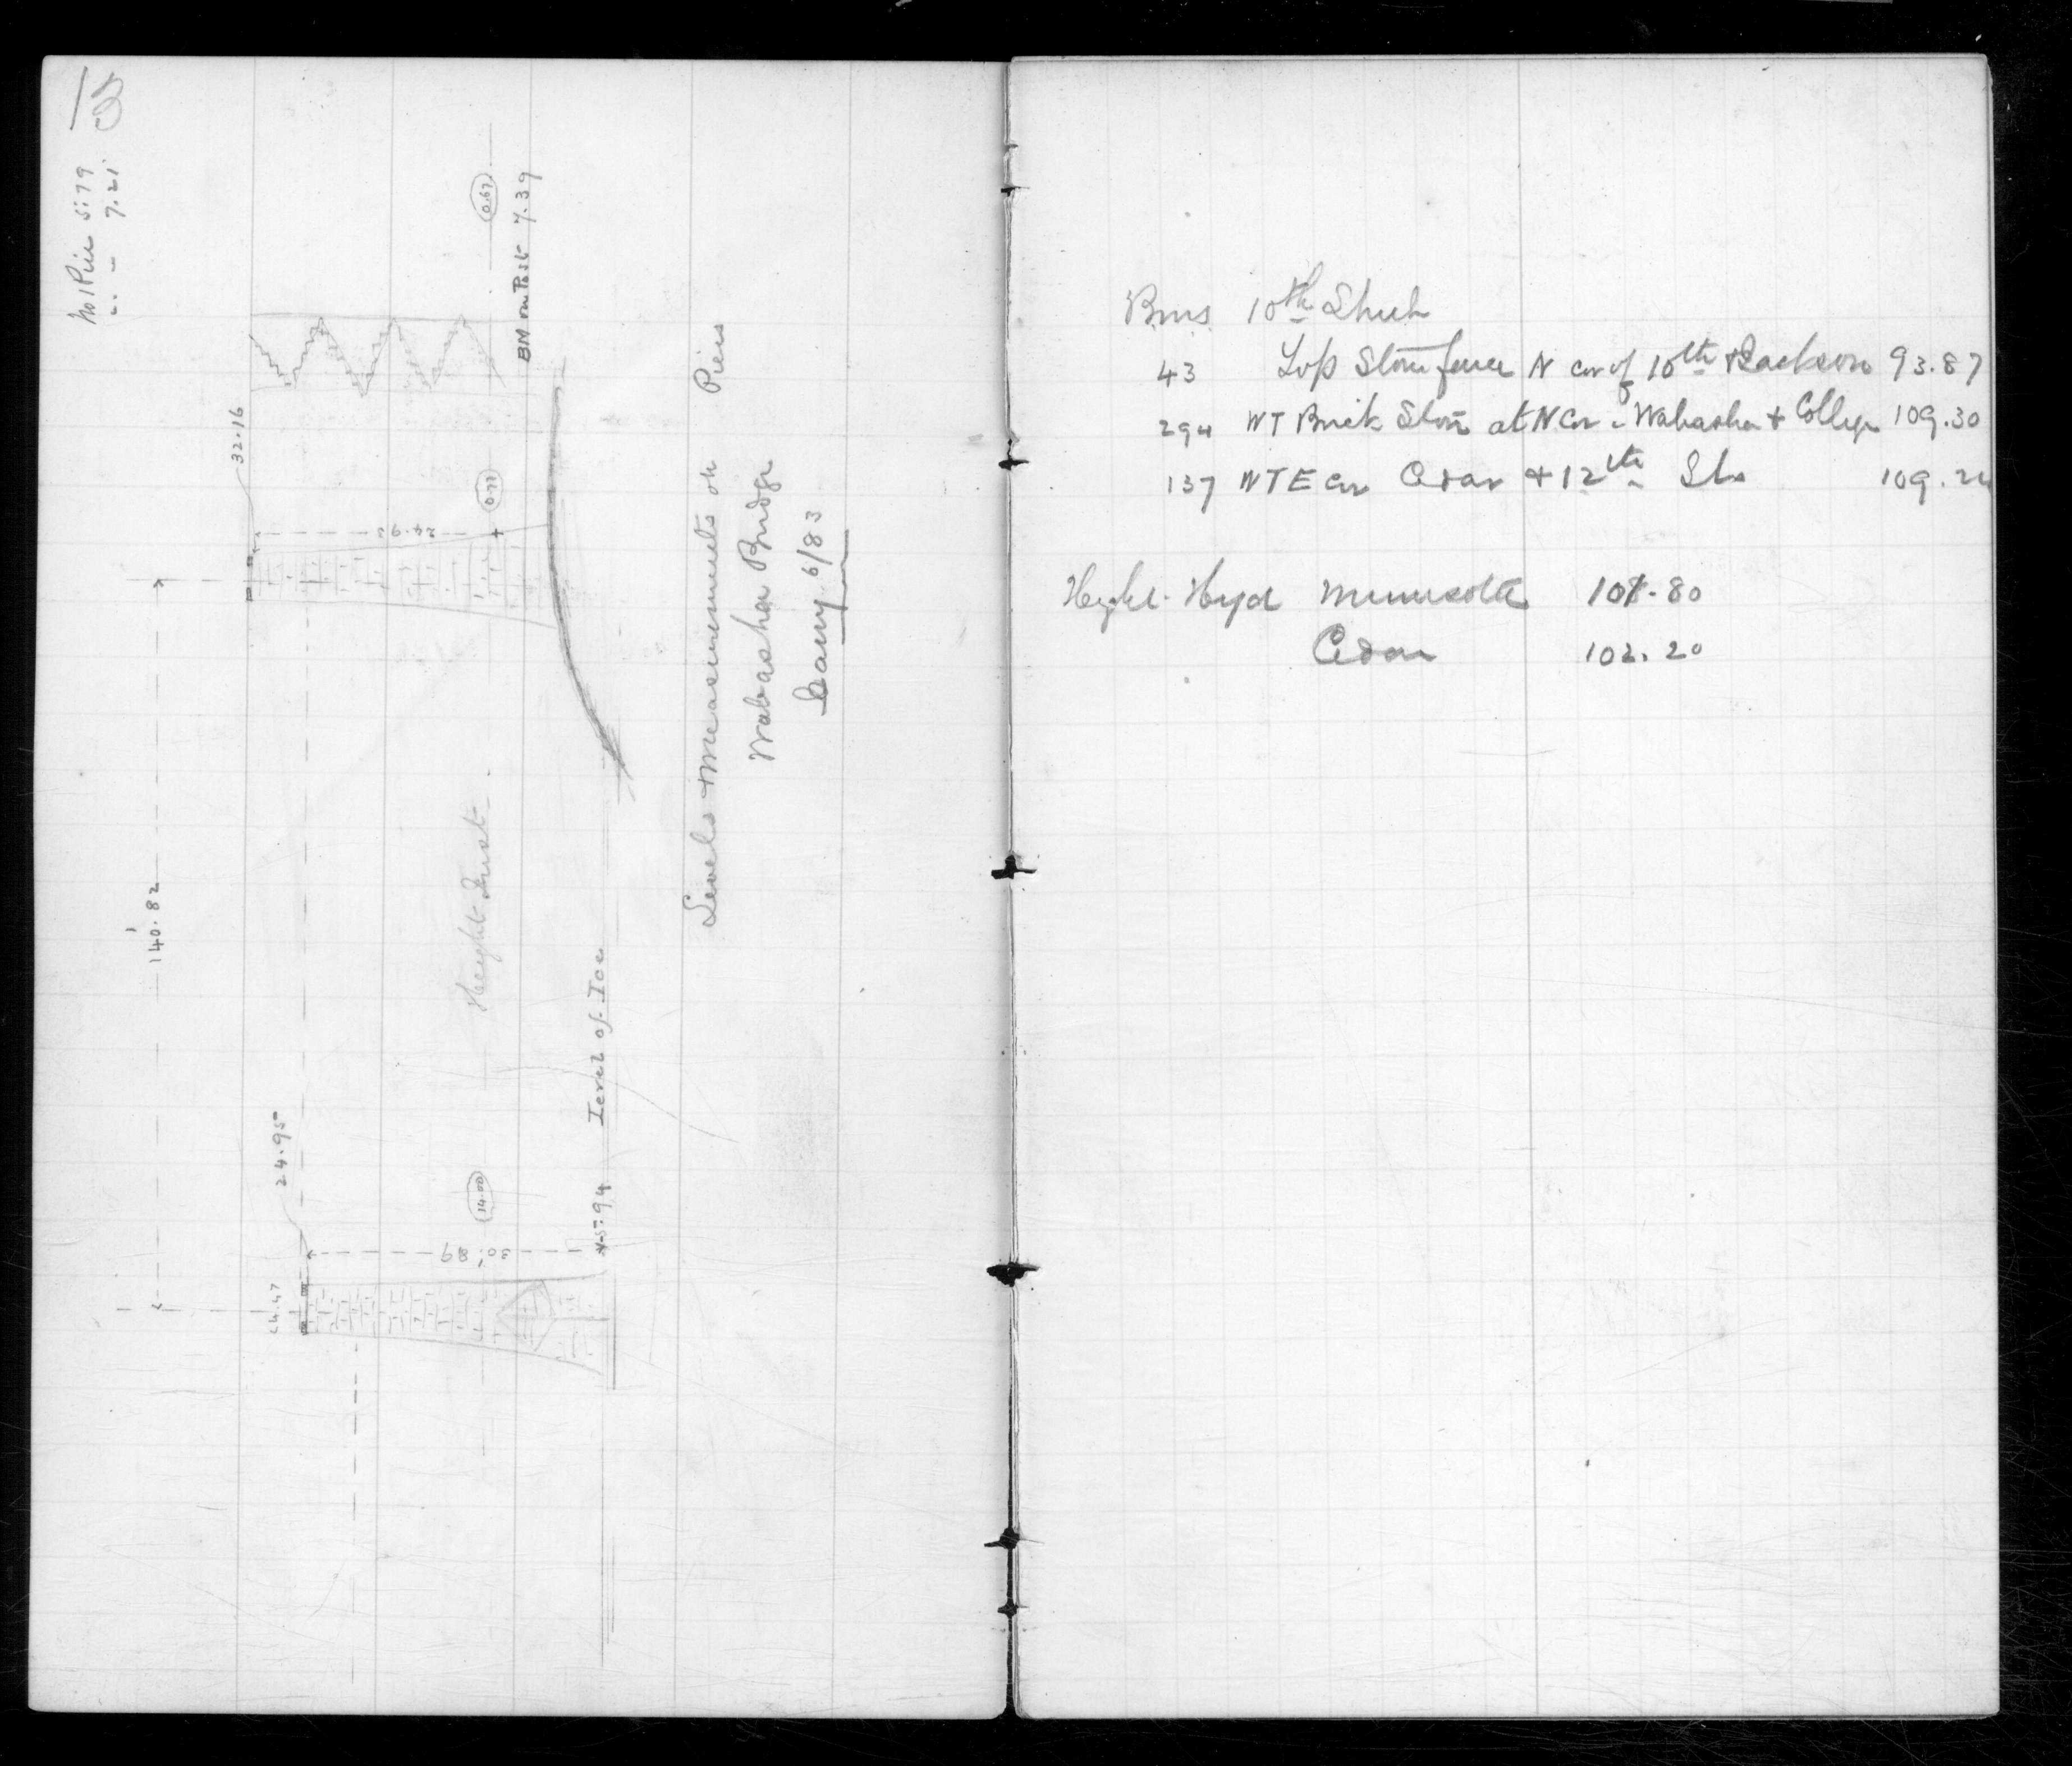 No 1 Pier 5.79
" - 7.21
140.82
32.16
24.95
24.47
26.43
30.89
0.67
0.77
14.00
BM on Post 7.39
Height Inst
Level of Ice
-5.94
Levels + Measurements on Piers
Wabasha Bridge
Jany 6/83
Bms 10th Street
43 Top Stone fence N cor of 10th & Jackson 93.87
294 WT Brick Store at N Cor - Wabasha + College 109.30
137 WT E cor Cedar + 12th Sts 109.24
Height Hyd Minnesota 107.80
Cedar 102.20